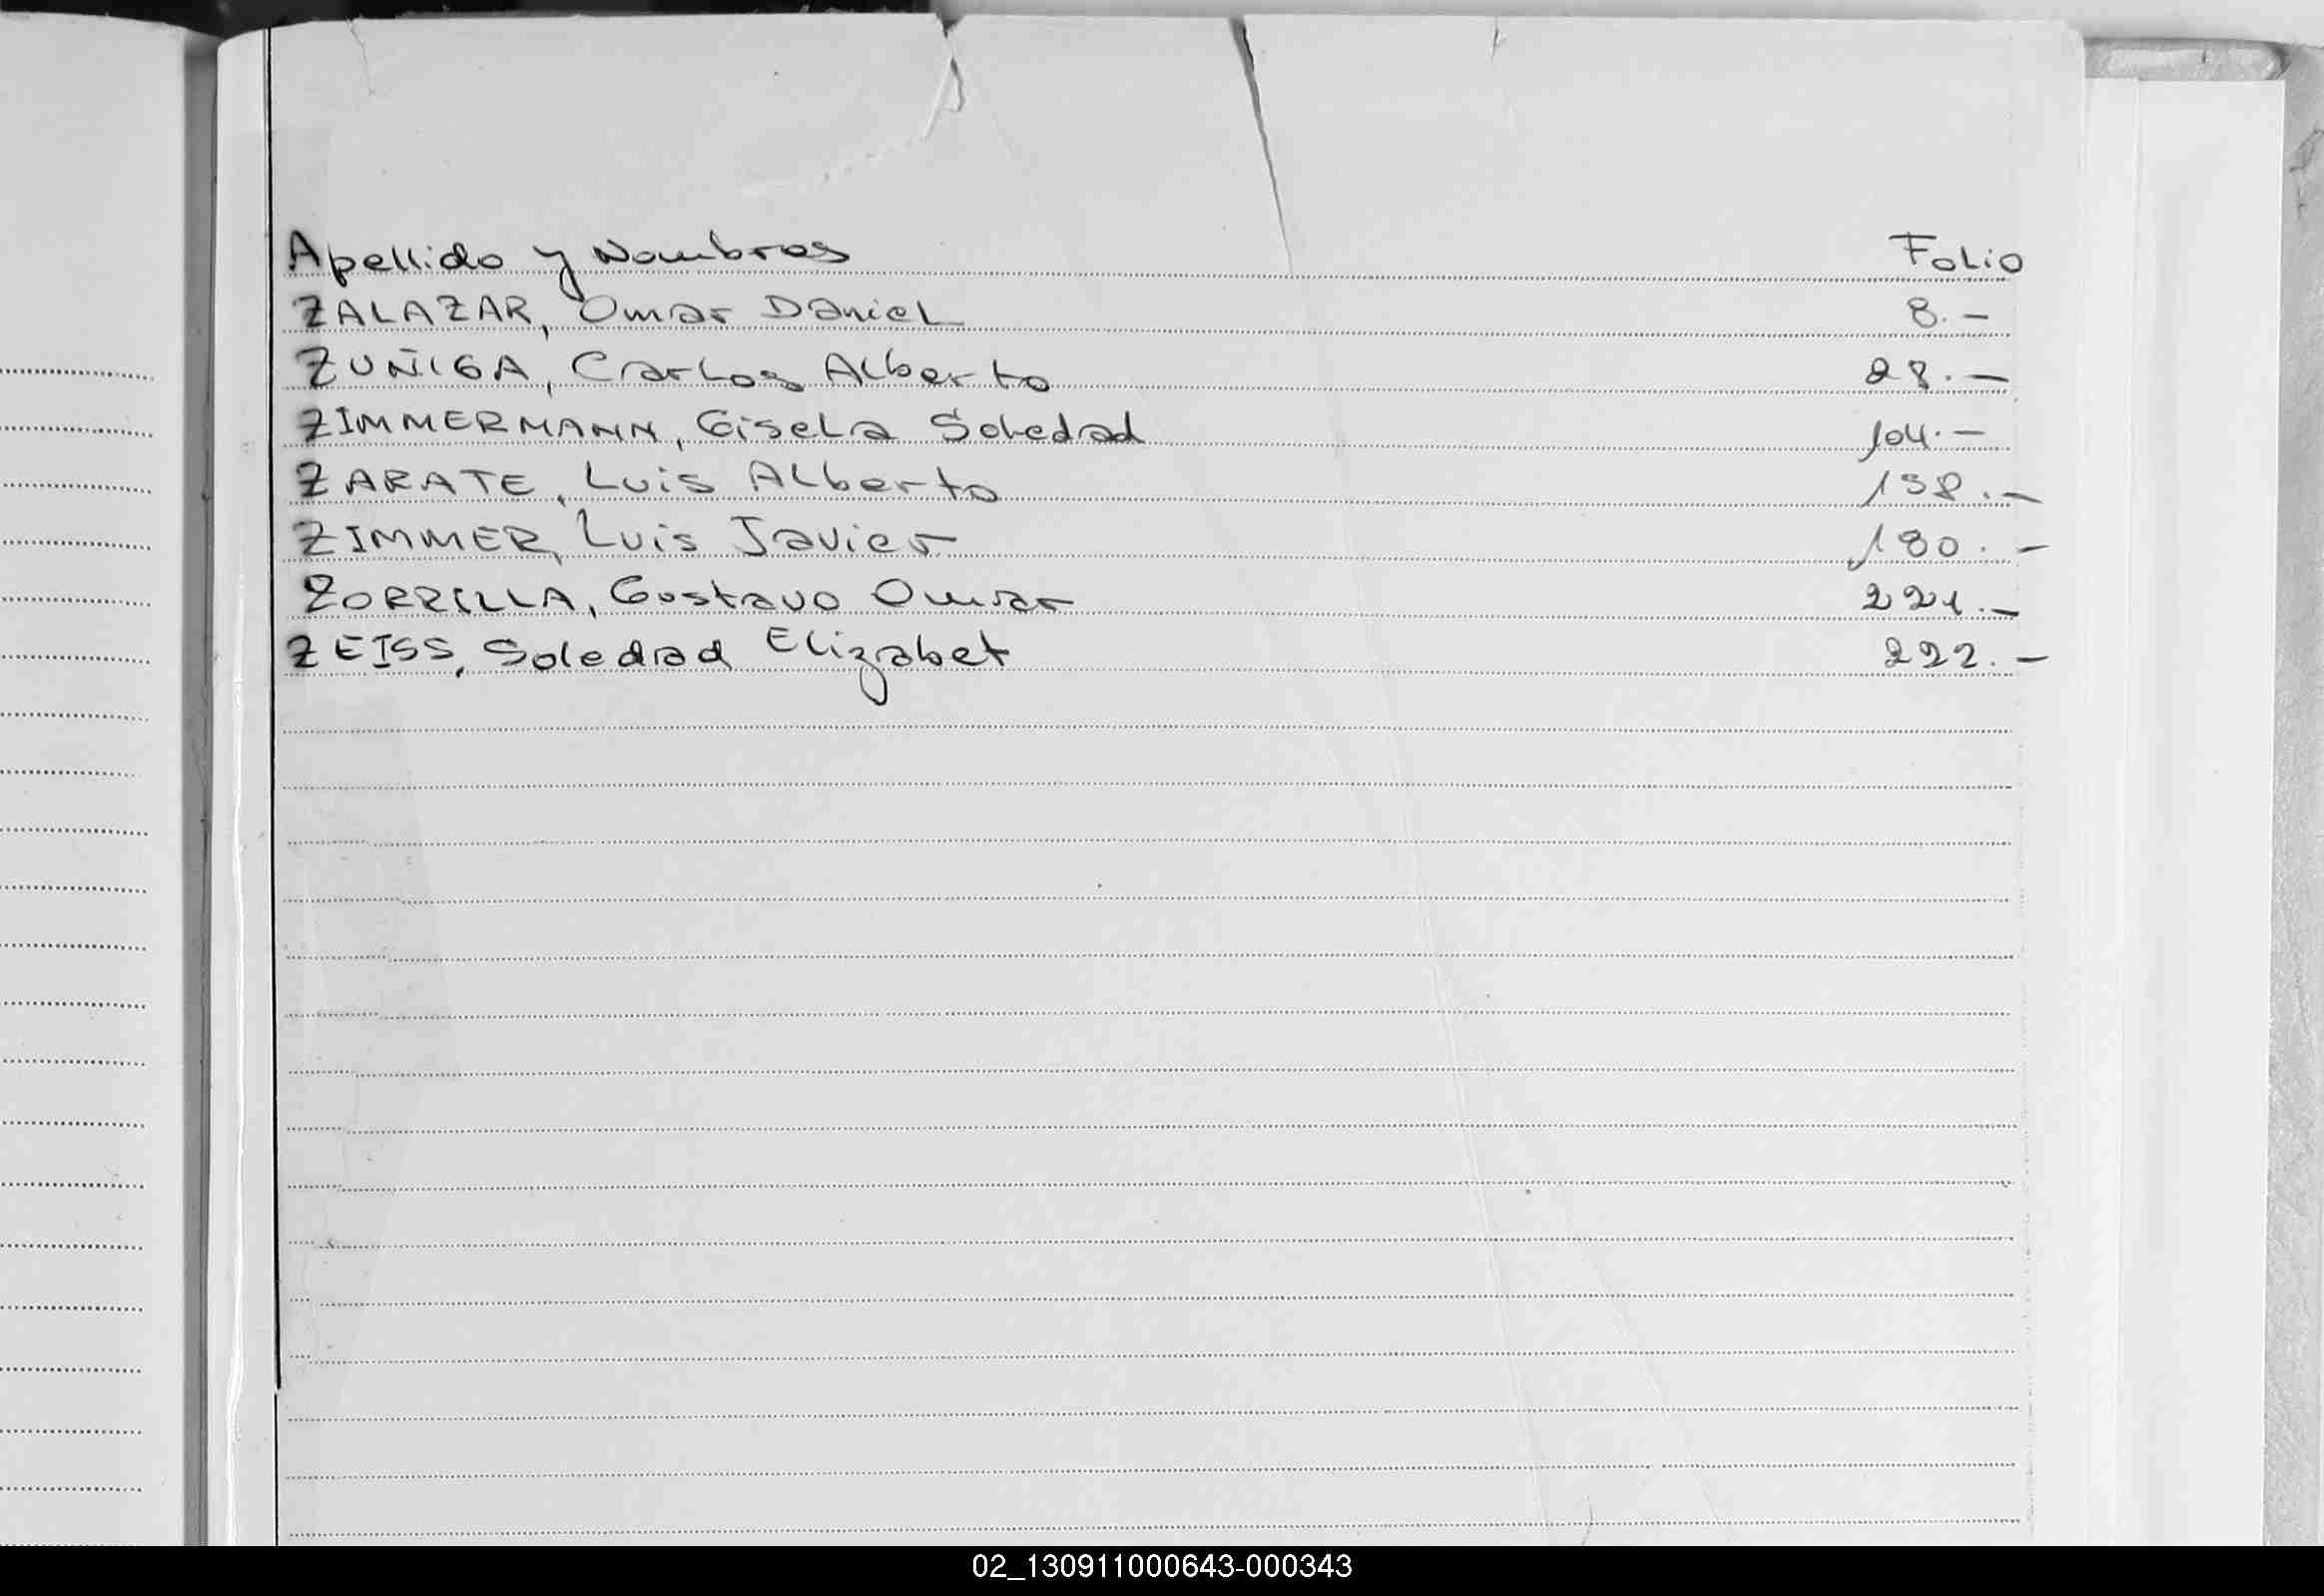 Apellido y Nombres Folio
ZALAZAR, Omar Daniel 8.-
ZUÑIGA, Carlos Alberto 28.-
ZIMMERMANN, Gisela Soledad 104.-
ZARATE, Luis Alberto 158.-
ZIMMER, Luis Javier 180.-
ZORRILLA, Gustavo Omar 221.-
ZEISS, Soledad Elizabet 222.-
02_130911000643-000343